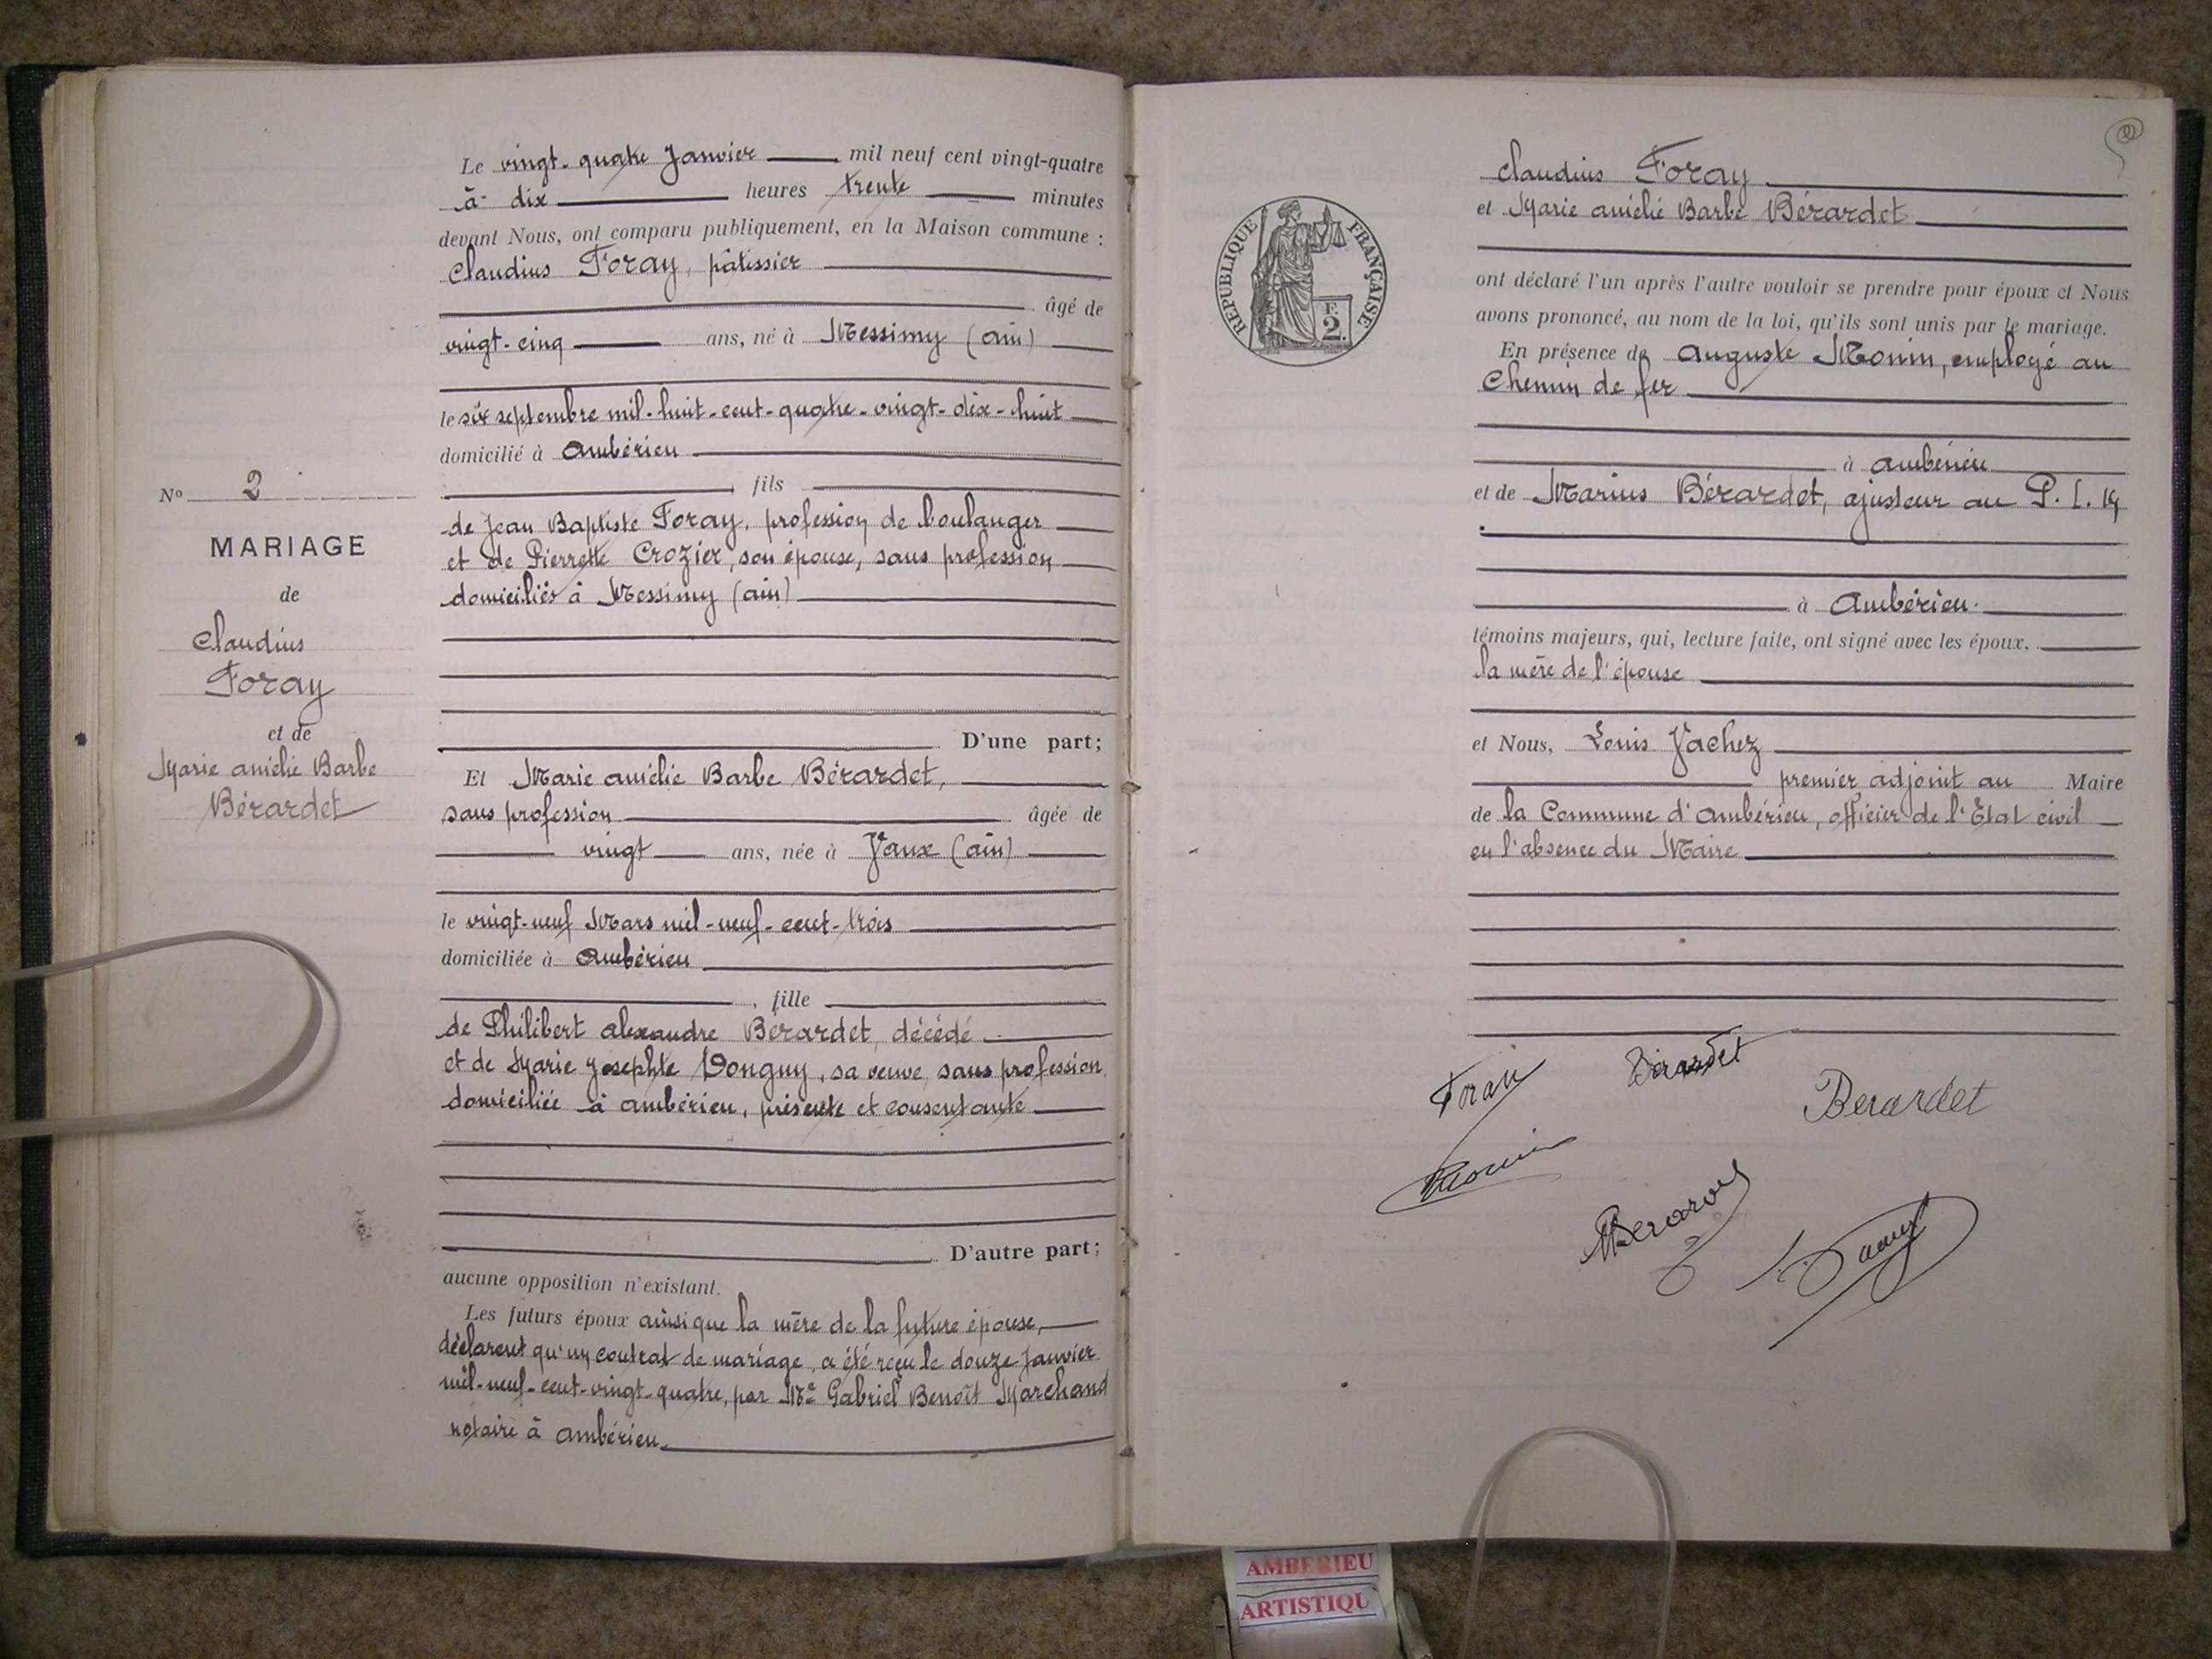 Le vingt-quatre Janvier mil neuf cent vingt-quatre
à dix heures trente minutes
devant Nous, ont comparu publiquement, en la Maison commune :
Claudius Foray, pâtissier
âgé de
vingt-cinq ans, né à Messimy (ain)
le six septembre mil-huit-cent-quatre-vingt-dix-huit
domicilié à Ambérieu
fils
de Jean Baptiste Foray, profession de boulanger
et de Pierrette Crozier, son épouse, sans profession
domiciliés à Messimy (ain)
D'une part;
Et Marie amélie Barbe Bérardet,
sans profession âgée de
vingt ans, née à Vaux (ain)
le vingt-neuf Mars mil-neuf-cent-trois
domiciliée à Ambérieu
, fille
de Philibert alexandre Bérardet, décédé
et de Marie Josephte Donguy, sa veuve, sans profession,
domiciliée à ambérieu, présente et consentante
D'autre part;
aucune opposition n'existant.
Les futurs époux ainsi que la mère de la future épouse,
déclarent qu'un contrat de mariage, a été reçu le douze Janvier
mil-neuf-cent-vingt-quatre, par Me Gabriel Benoît Marchand
notaire à ambérieu
No 2
MARIAGE
de
Claudius
Foray
et de
Marie amélie Barbe
Bérardet
2
REPUBLIQUE FRANÇAISE
F.
2.
Claudius Foray
et Marie amélie Barbe Bérardet
ont déclaré l'un après l'autre vouloir se prendre pour époux et Nous
avons prononcé, au nom de la loi, qu'ils sont unis par le mariage.
En présence de Auguste Monin, employé au
Chemin de fer
à ambérieu
et de Marius Bérardet, ajusteur au P. L. M
à Ambérieu.
témoins majeurs, qui, lecture faite, ont signé avec les époux.
la mère de l'épouse
et Nous, Louis Vachez
premier adjoint au Maire
de la Commune d'Ambérieu, officier de l'Etat civil
en l'absence du Maire
Foray
Bérardet
Berardet
Monin
AMBERIEU
ARTISTIQU